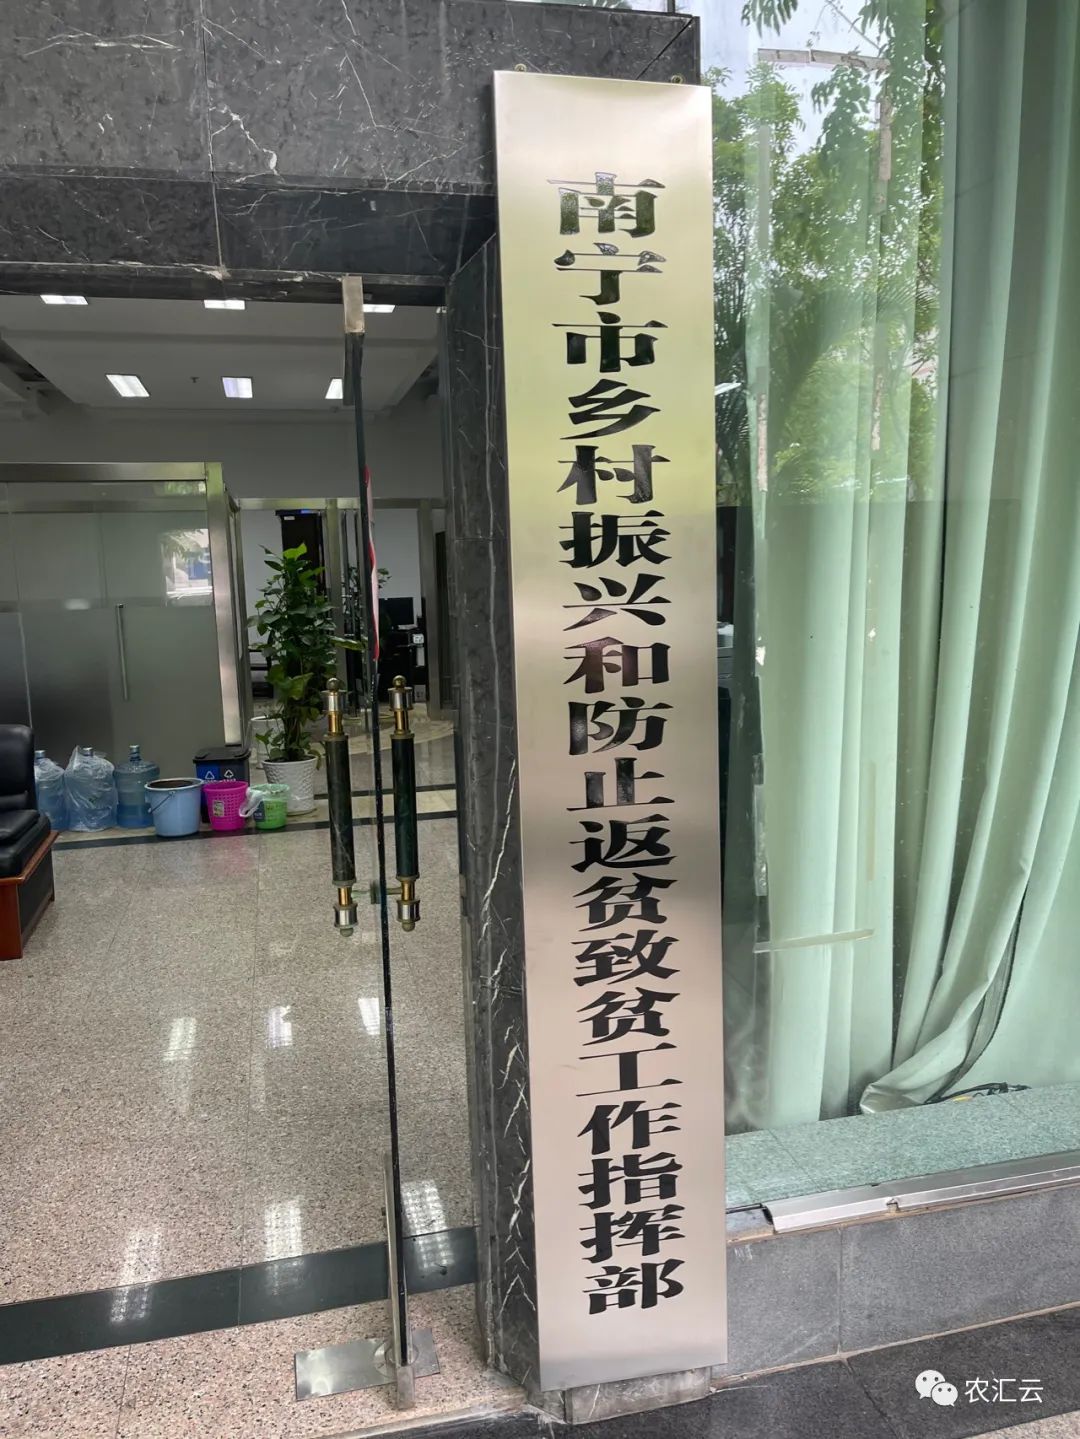 南宁市乡村振兴和防止返贫致贫工作指挥部
农汇云